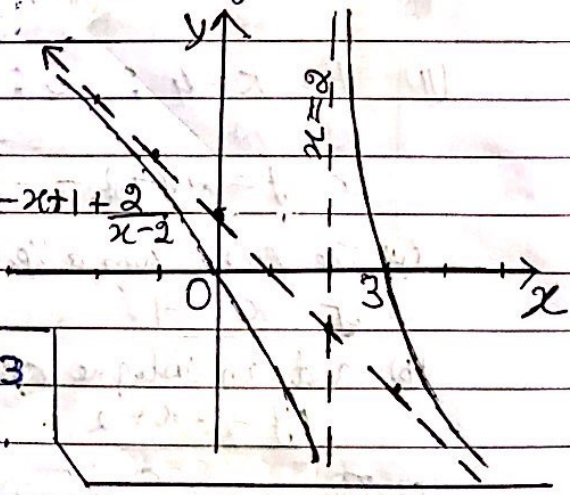 y
x=2
-x+1+2/(x-2)
0
3
x
3